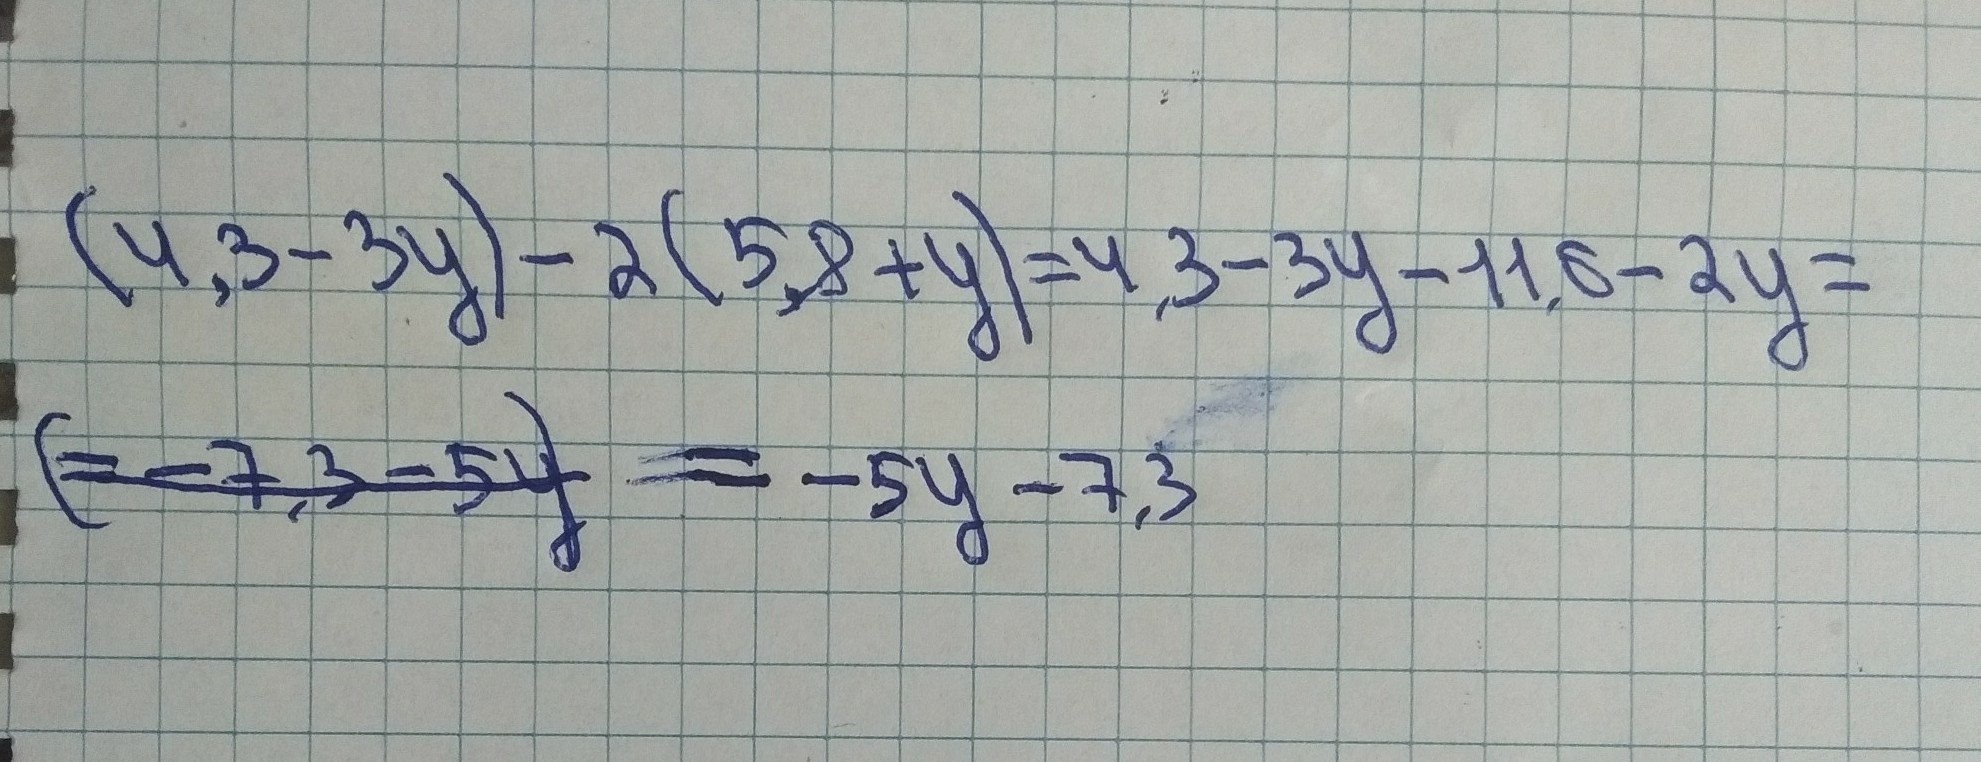 (4,3-3y)-2(5,8+y)=4,3-3y-11,6-2y=
(=-7,3-5y) =-5y-7,3